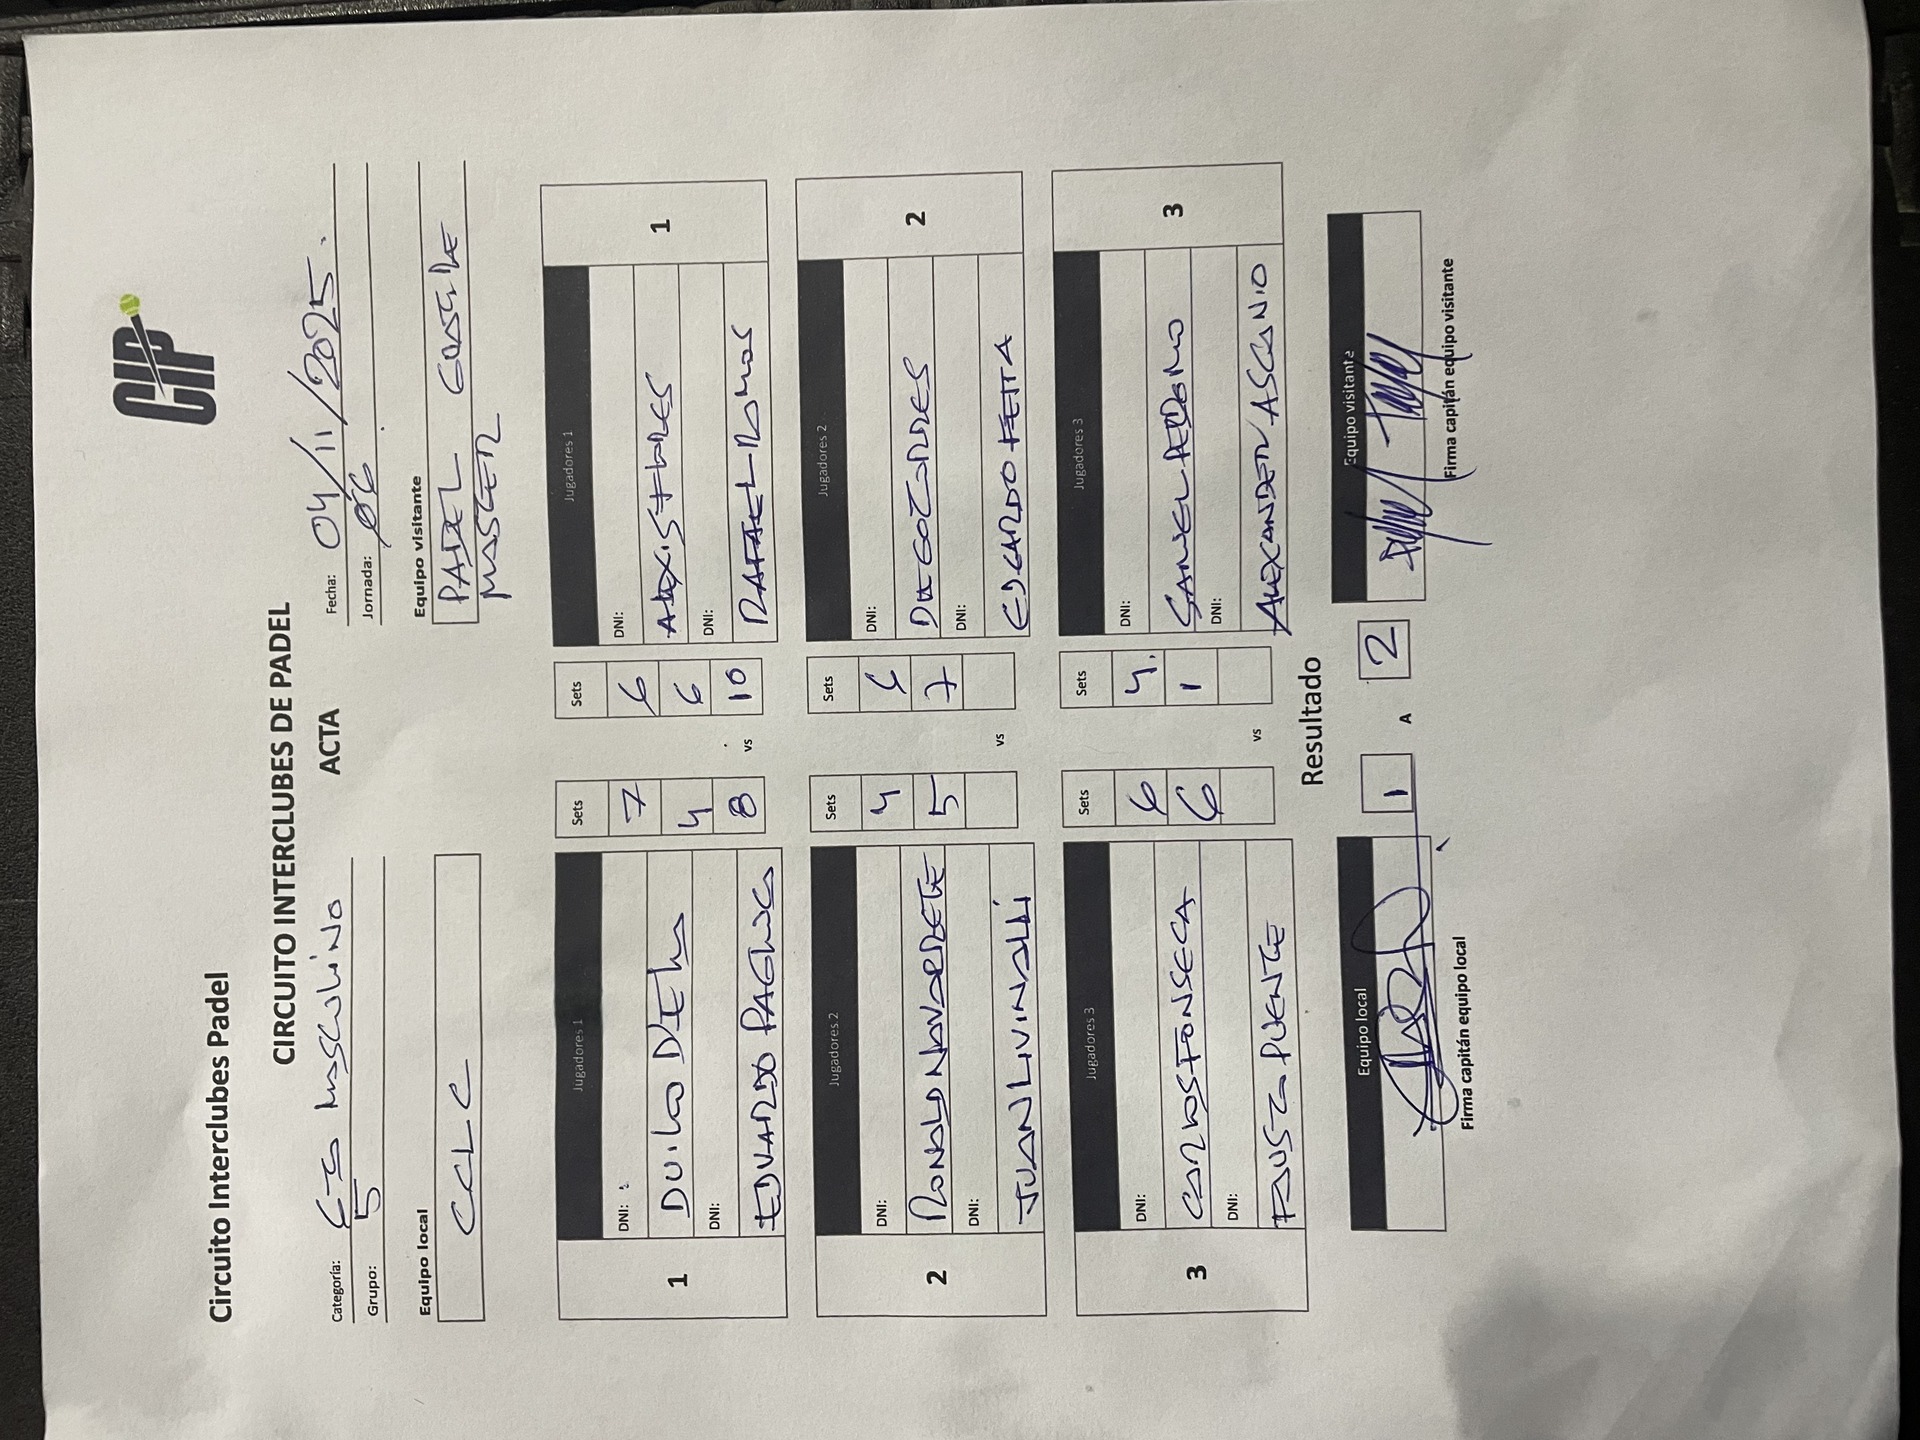 CIP
Circuito Interclubes Padel
CIRCUITO INTERCLUBES DE PADEL
ACTA
Categoría: masculino
Grupo: 5
Fecha: 04/11/2025.
Jornada: 06
Equipo local
CCLC
Equipo visitante
PADEL
MASTER
1
Jugadores 1
DNI:
DUILIO
DNI:
EDUARDO
Sets
7
4
8
vs
Sets
6
6
10
Jugadores 1
DNI:
ALEXIS FLORES
DNI:
RAFAEL RAMOS
1
2
Jugadores 2
DNI:
RONALD NAVARRETE
DNI:
JUAN LIVINALLI
Sets
4
5
vs
Sets
6
7
Jugadores 2
DNI:
DIEGO
DNI:
EDGARDO FEITA
2
3
Jugadores 3
DNI:
CARLOS FONSECA
DNI:
FAUSTO PUENTE
Sets
6
6
vs
Sets
4.
1
Jugadores 3
DNI:
DNI:
ALEXANDER ASCANIO
3
Resultado
Equipo local
1
A
2
Equipo visitante
Firma capitán equipo local
Firma capitán equipo visitante